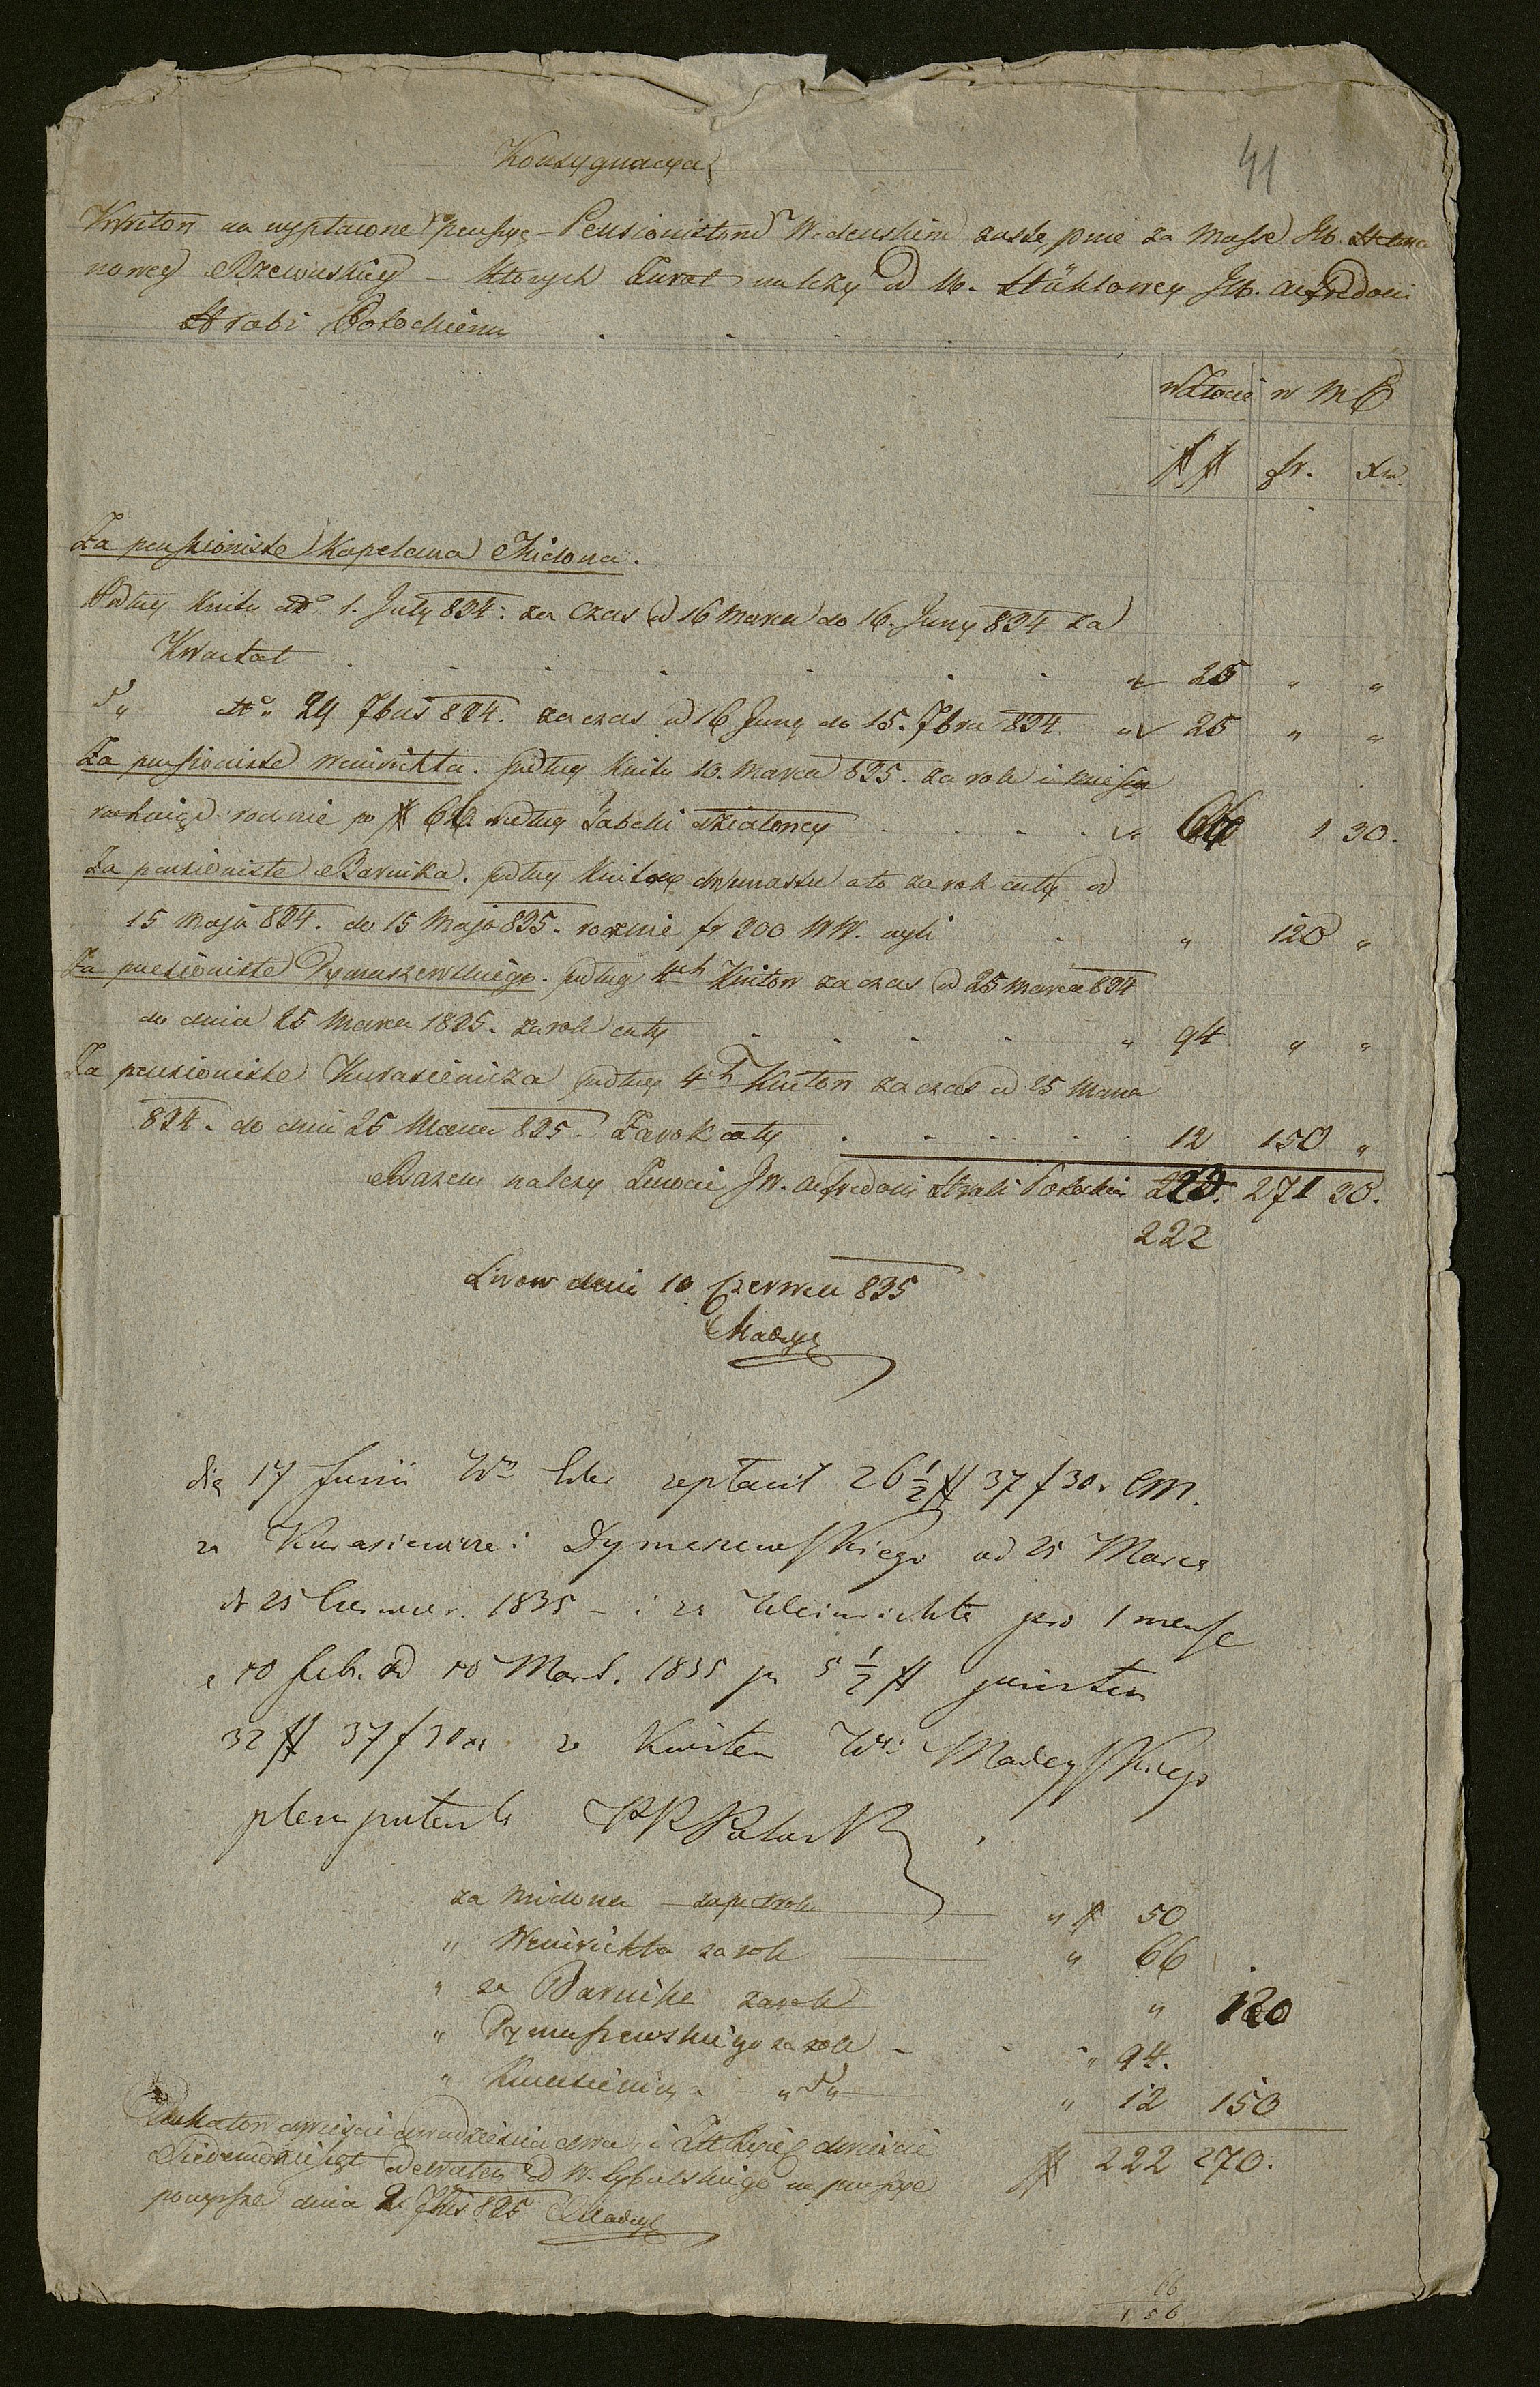 Konsygnacya
41
Kwitow na wypłacone pensye Pensionistom Wideńskim za Masse JW.
nowey Rzewuskiey – których Zwrot należy od W. JW. Alfredowi
Hrabi Potockiemu
w Złocie w M C
## fr. Xr.
Za pensioniste Kapelana Midona.
Podług Kwitu dto 1. July 834. za czas od 16 Marca do 16. Juny 834 za
Kwartał 25 " "
d" dto 24 7bris 834. za czas od 16 Juny do 15. 7bra 834 " 25 " "
Za pensioniste Weinrichta. podług Kwitu 10. Marca 835. za rok i
rocznie po # 66. według Tabelli działowey 66 1 30.
Za pensioniste Barnika. podług Kwitow dwunastu a to za rok cały od
15 Maja 834. do 15 Maja 835. rocznie fr 300 WW. czyli " 120 "
Za pensioniste Dymuszewskiego. podług 4ch Kwitow za czas od 25 Marca 834
do dnia 25 Marca 1835. za rok cały " 94 " "
Za pensioniste Kurasiewicza podług 4ch Kwitow za czas od 25 Marca
834. do dnia 25 Marca 835. Za rok cały 12 150 "
Razem należy Zwrócić JW. Alfredowi Hrabi Potockiemu 271 30.
222
Lwow dnia 10 Czerwca 835
Madey
die 17 Junii Wny zapłacił 26 1/2 # 37 f 30 x CM.
za Kurasiewicza i Dymeszewskiego od 25 Marca
do 25 Czerwca 1835 – i za Weinrichta pro 1 mense
a 10 feb. ad 10 Mart. 1835 po 5 1/2 #
32 # 37 f 30 x za Kwitem Wo Madeyskiego
plenipotenta
za Midona za pół roku " # 50
" Weinrichta za rok " 66
" za Barnike za rok " 120
" Dymuszewskiego za rok " 94.
" Kurasiewicza " d" " 12 150
Dukatow dwieście dwadzieścia dwa, i Zł Reń dwieście # 222 270.
Siedemdziesiąt odebrałem od W. na pensye
powyższe dnia 2 7bris 835 Madey